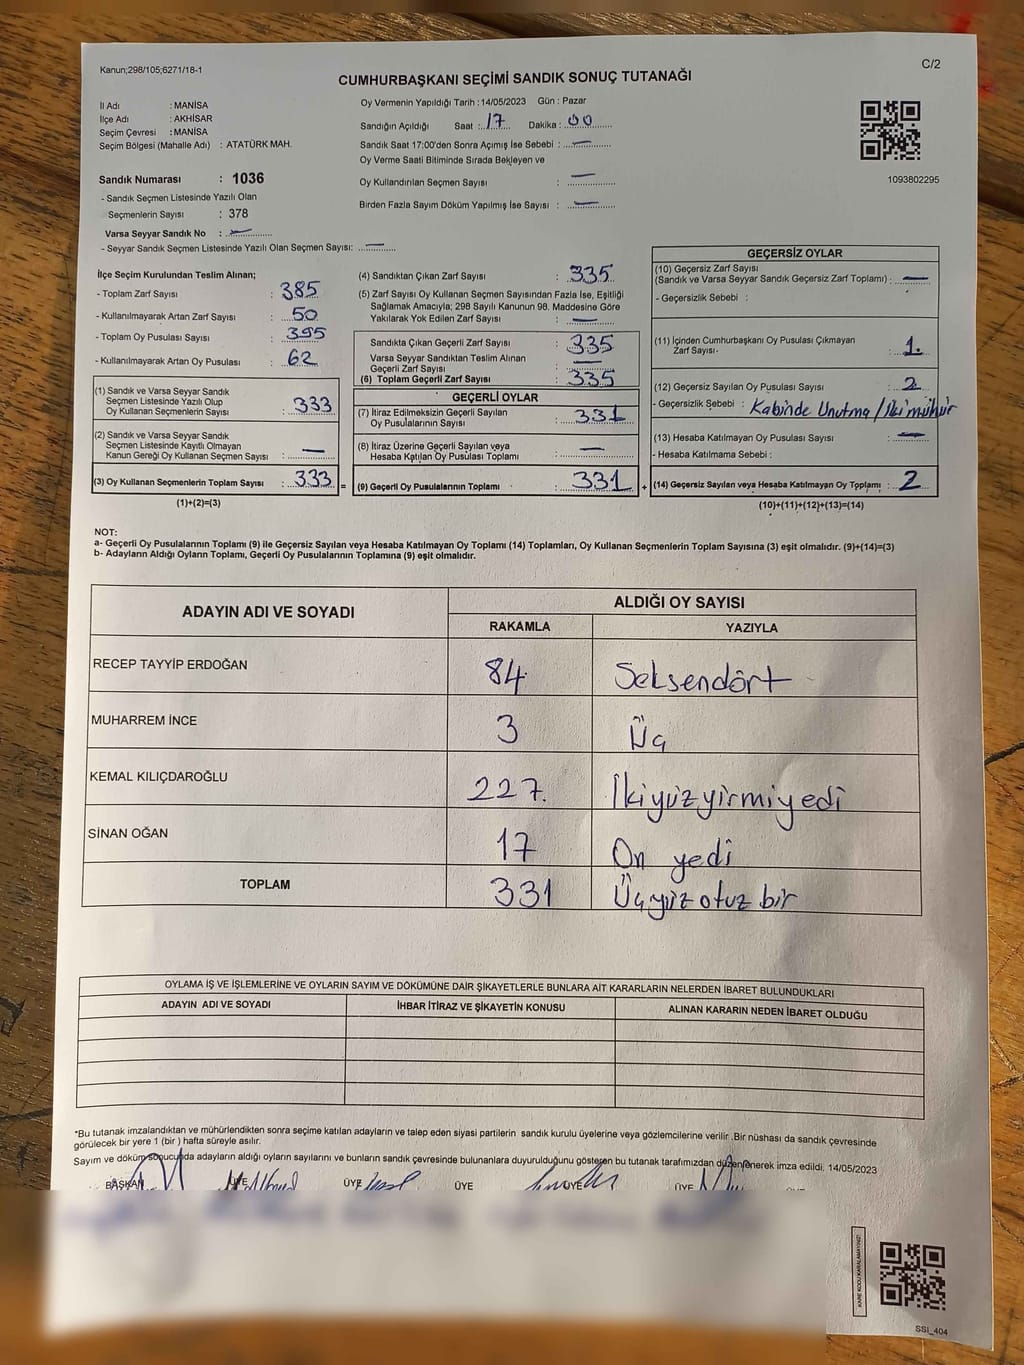 Kanun;298/105;6271/18-1
C/2
CUMHURBAŞKANI SEÇİMİ SANDIK SONUÇ TUTANAĞI
İl Adı : MANİSA
İlçe Adı : AKHİSAR
Seçim Çevresi : MANİSA
Seçim Bölgesi (Mahalle Adı) : ATATÜRK MAH.
Sandık Numarası : 1036
- Sandık Seçmen Listesinde Yazılı Olan
Seçmenlerin Sayısı : 378
Varsa Seyyar Sandık No : —
- Seyyar Sandık Seçmen Listesinde Yazılı Olan Seçmen Sayısı: —
Oy Vermenin Yapıldığı Tarih : 14/05/2023 Gün : Pazar
Sandığın Açıldığı Saat : 17 Dakika : 00
Sandık Saat 17:00'den Sonra Açımış İse Sebebi : —
Oy Verme Saati Bitiminde Sırada Bekleyen ve
Oy Kullandırılan Seçmen Sayısı : —
Birden Fazla Sayım Döküm Yapılmış İse Sayısı : —
1093802295
İlçe Seçim Kurulundan Teslim Alınan;
- Toplam Zarf Sayısı : 385
- Kullanılmayarak Artan Zarf Sayısı : 50
- Toplam Oy Pusulası Sayısı : 395
- Kullanılmayarak Artan Oy Pusulası : 62
(1) Sandık ve Varsa Seyyar Sandık
Seçmen Listesinde Yazılı Olup
Oy Kullanan Seçmenlerin Sayısı : 333
(2) Sandık ve Varsa Seyyar Sandık
Seçmen Listesinde Kayıtlı Olmayan
Kanun Gereği Oy Kullanan Seçmen Sayısı : —
(3) Oy Kullanan Seçmenlerin Toplam Sayısı : 333 =
(1)+(2)=(3)
(4) Sandıktan Çıkan Zarf Sayısı : 335
(5) Zarf Sayısı Oy Kullanan Seçmen Sayısından Fazla İse, Eşitliği
Sağlamak Amacıyla; 298 Sayılı Kanunun 98. Maddesine Göre
Yakılarak Yok Edilen Zarf Sayısı : —
Sandıkta Çıkan Geçerli Zarf Sayısı : 335
Varsa Seyyar Sandıktan Teslim Alınan
Geçerli Zarf Sayısı : —
(6) Toplam Geçerli Zarf Sayısı : 335
GEÇERLİ OYLAR
(7) İtiraz Edilmeksizin Geçerli Sayılan
Oy Pusulalarının Sayısı : 331
(8) İtiraz Üzerine Geçerli Sayılan veya
Hesaba Katılan Oy Pusulası Toplamı : —
(9) Geçerli Oy Pusulalarının Toplamı : 331 +
GEÇERSİZ OYLAR
(10) Geçersiz Zarf Sayısı
(Sandık ve Varsa Seyyar Sandık Geçersiz Zarf Toplamı) : —
- Geçersizlik Sebebi :
(11) İçinden Cumhurbaşkanı Oy Pusulası Çıkmayan
Zarf Sayısı- : 1.
(12) Geçersiz Sayılan Oy Pusulası Sayısı : 2
- Geçersizlik Sebebi : Kabinde Unutma / İki mühür
(13) Hesaba Katılmayan Oy Pusulası Sayısı : —
- Hesaba Katılmama Sebebi :
(14) Geçersiz Sayılan veya Hesaba Katılmayan Oy Toplamı : 2
(10)+(11)+(12)+(13)=(14)
NOT:
a- Geçerli Oy Pusulalarının Toplamı (9) ile Geçersiz Sayılan veya Hesaba Katılmayan Oy Toplamı (14) Toplamları, Oy Kullanan Seçmenlerin Toplam Sayısına (3) eşit olmalıdır. (9)+(14)=(3)
b- Adayların Aldığı Oyların Toplamı, Geçerli Oy Pusulalarının Toplamına (9) eşit olmalıdır.
ADAYIN ADI VE SOYADI ALDIĞI OY SAYISI
RAKAMLA YAZIYLA
RECEP TAYYİP ERDOĞAN 84 Seksendört
MUHARREM İNCE 3 Üç
KEMAL KILIÇDAROĞLU 227. İkiyüzyirmiyedi
SİNAN OĞAN 17 On yedi
TOPLAM 331 Üçyüz otuz bir
OYLAMA İŞ VE İŞLEMLERİNE VE OYLARIN SAYIM VE DÖKÜMÜNE DAİR ŞİKAYETLERLE BUNLARA AİT KARARLARIN NELERDEN İBARET BULUNDUKLARI
ADAYIN ADI VE SOYADI İHBAR İTİRAZ VE ŞİKAYETİN KONUSU ALINAN KARARIN NEDEN İBARET OLDUĞU
*Bu tutanak imzalandıktan ve mühürlendikten sonra seçime katılan adayların ve talep eden siyasi partilerin sandık kurulu üyelerine veya gözlemcilerine verilir .Bir nüshası da sandık çevresinde
görülecek bir yere 1 (bir ) hafta süreyle asılır.
Sayım ve döküm sonucunda adayların aldığı oyların sayılarını ve bunların sandık çevresinde bulunanlara duyurulduğunu gösteren bu tutanak tarafımızdan düzenlenerek imza edildi. 14/05/2023
BAŞKAN ÜYE ÜYE ÜYE ÜYE ÜYE
KARE KODU KARALAMAYINIZ!
SSI_404